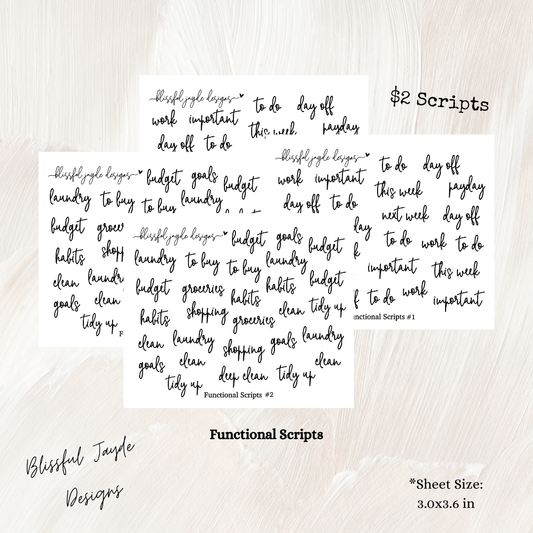 $2 Scripts
blissful jayde designs
to do day off
work important
this week payday
day off to do
blissful jayde designs
to do day off
work important
this week payday
day off to do
next week day off
day
to do work to do
important this week
to do work important
Functional Scripts #1
blissful jayde designs
budget goals budget
laundry to buy to buy laundry
budget
habits
clean laundry
goals clean
tidy up
blissful jayde designs
budget goals budget
laundry to buy to buy laundry
budget groceries habits habits budget
habits shopping groceries clean tidy up
clean laundry shopping goals laundry
goals clean deep clean tidy up clean
tidy up
Functional Scripts #2
Functional Scripts
Blissful Jayde
Designs
*Sheet Size:
3.0x3.6 in